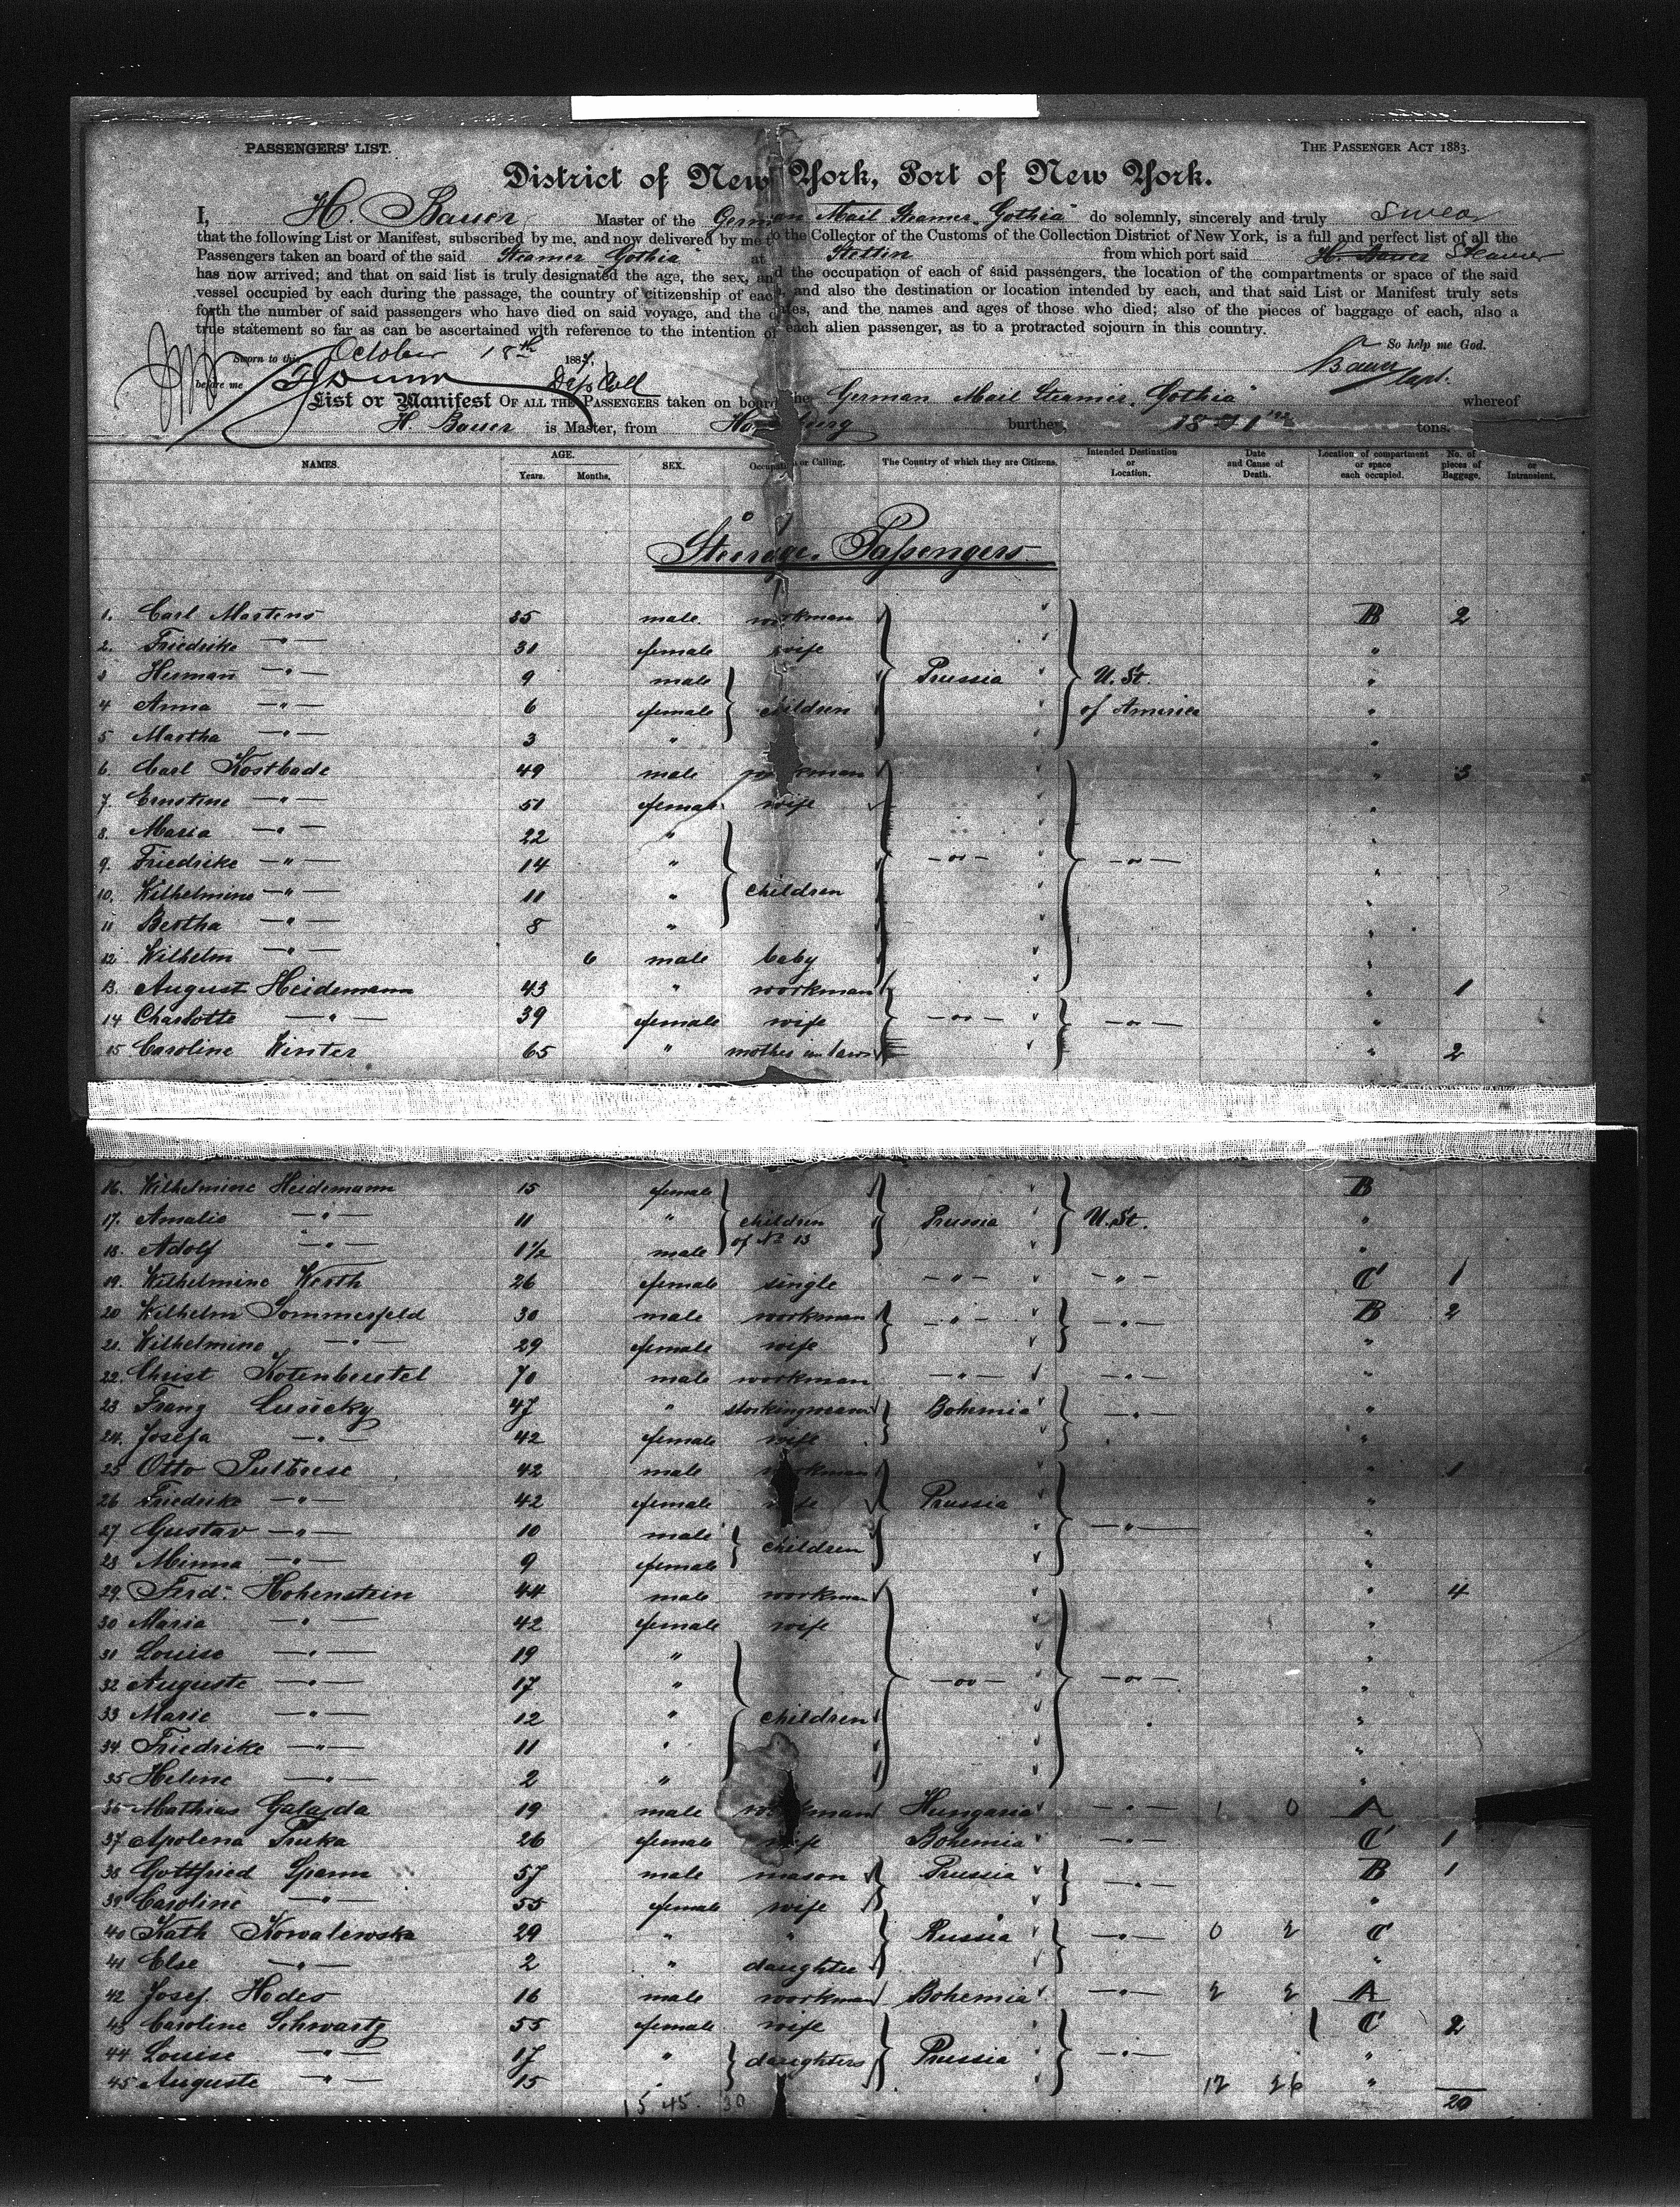 PASSENGERS' LIST. THE PASSENGER ACT 1883.
District of New York, Port of New York.
I, H. Bauer Master of the German Mail Steamer "Gothia" do solemnly, sincerely and truly swear
that the following List or Manifest, subscribed by me, and now delivered by me to the Collector of the Customs of the Collection District of New York, is a full and perfect list of all the
Passengers taken an board of the said Steamer Gothia at Stettin from which port said H. Bauer Steamer
has now arrived; and that on said list is truly designated the age, the sex, and the occupation of each of said passengers, the location of the compartments or space of the said
vessel occupied by each during the passage, the country of citizenship of each, and also the destination or location intended by each, and that said List or Manifest truly sets
forth the number of said passengers who have died on said voyage, and the dates, and the names and ages of those who died; also of the pieces of baggage of each, also a
true statement so far as can be ascertained with reference to the intention of each alien passenger, as to a protracted sojourn in this country.
Sworn to this October 18th 188 So help me God.
before me Dep Coll Bauer Capt.
List or Manifest OF ALL THE PASSENGERS taken on board the German Mail Steamer "Gothia" whereof
H. Bauer is Master, from Hamburg burthen, tons.
NAMES. AGE. Years. Months. SEX. Occupation or Calling. The Country of which they are Citizens. Intended Destination or Location. Date and Cause of Death. Location of compartment or space each occupied. No. of pieces of Baggage. or Intransient.
Steerage Passengers
1. Carl Martens 35 male workman B 2
2. Friedrike —"— 31 female wife "
3 Herman —"— 9 male Prussia U. St. "
4 Anna —"— 6 female children of America "
5 Martha —"— 3 " "
6. Carl Kostbade 49 male workman " 3
7. Ernstine —"— 51 female wife "
8. Maria —"— 22 " "
9. Friedrike —"— 14 " —"— —"— "
10. Wilhelmine —"— 11 " children "
11 Bertha —"— 8 " "
12 Wilhelm —"— 6 male baby "
13. August Heidemann 43 " workman " 1
14 Charlotte —"— 39 female wife —"— —"— "
15 Caroline Winter 65 " mother in law " 2
16. Wilhelmine Heidemann 15 female B
17. Amalie —"— 11 " children Prussia U. St. "
18. Adolf —"— 1½ male of No 13 "
19. Wilhelmine Werth 26 female single —"— —"— C 1
20 Wilhelm Sommerfeld 30 male workman —"— —"— B 2
21. Wilhelmine —"— 29 female wife "
22. Christ Kotenbeutel 70 male workman —"— —"— "
23 Franz Lusicky 47 " Bohemia —"— "
24. Josefa —"— 42 female wife "
25 Otto 42 male workman " 1
26 Friedrike —"— 42 female wife Prussia "
27 Gustav —"— 10 male children —"— "
28 Minna —"— 9 female "
29. Ferd. Hohenstein 44 male workman " 4
30 Maria —"— 42 female wife "
31 Louise —"— 19 " "
32 Auguste —"— 17 " —"— —"— "
33 Marie —"— 12 " children "
34 Friedrike —"— 11 " "
35 Helene —"— 2 " "
36 Mathias Galajda 19 male workman Hungaria —"— 1 0 A
37 Apolena Truka 26 female wife Bohemia —"— C 1
38 Gottfried Spann 57 male mason Prussia —"— B 1
39 Caroline —"— 55 female wife "
40 Kath Kowalewska 29 " " Russia —"— 0 2 C
41 Else —"— 2 " daughter "
42 Josef Hodes 16 male workman Bohemia —"— 2 2 A
43 Caroline Schwartz 55 female wife C 2
44 Louise —"— 17 " daughters Prussia —"— "
45 Auguste —"— 15 12 26 "
15 45 30 20